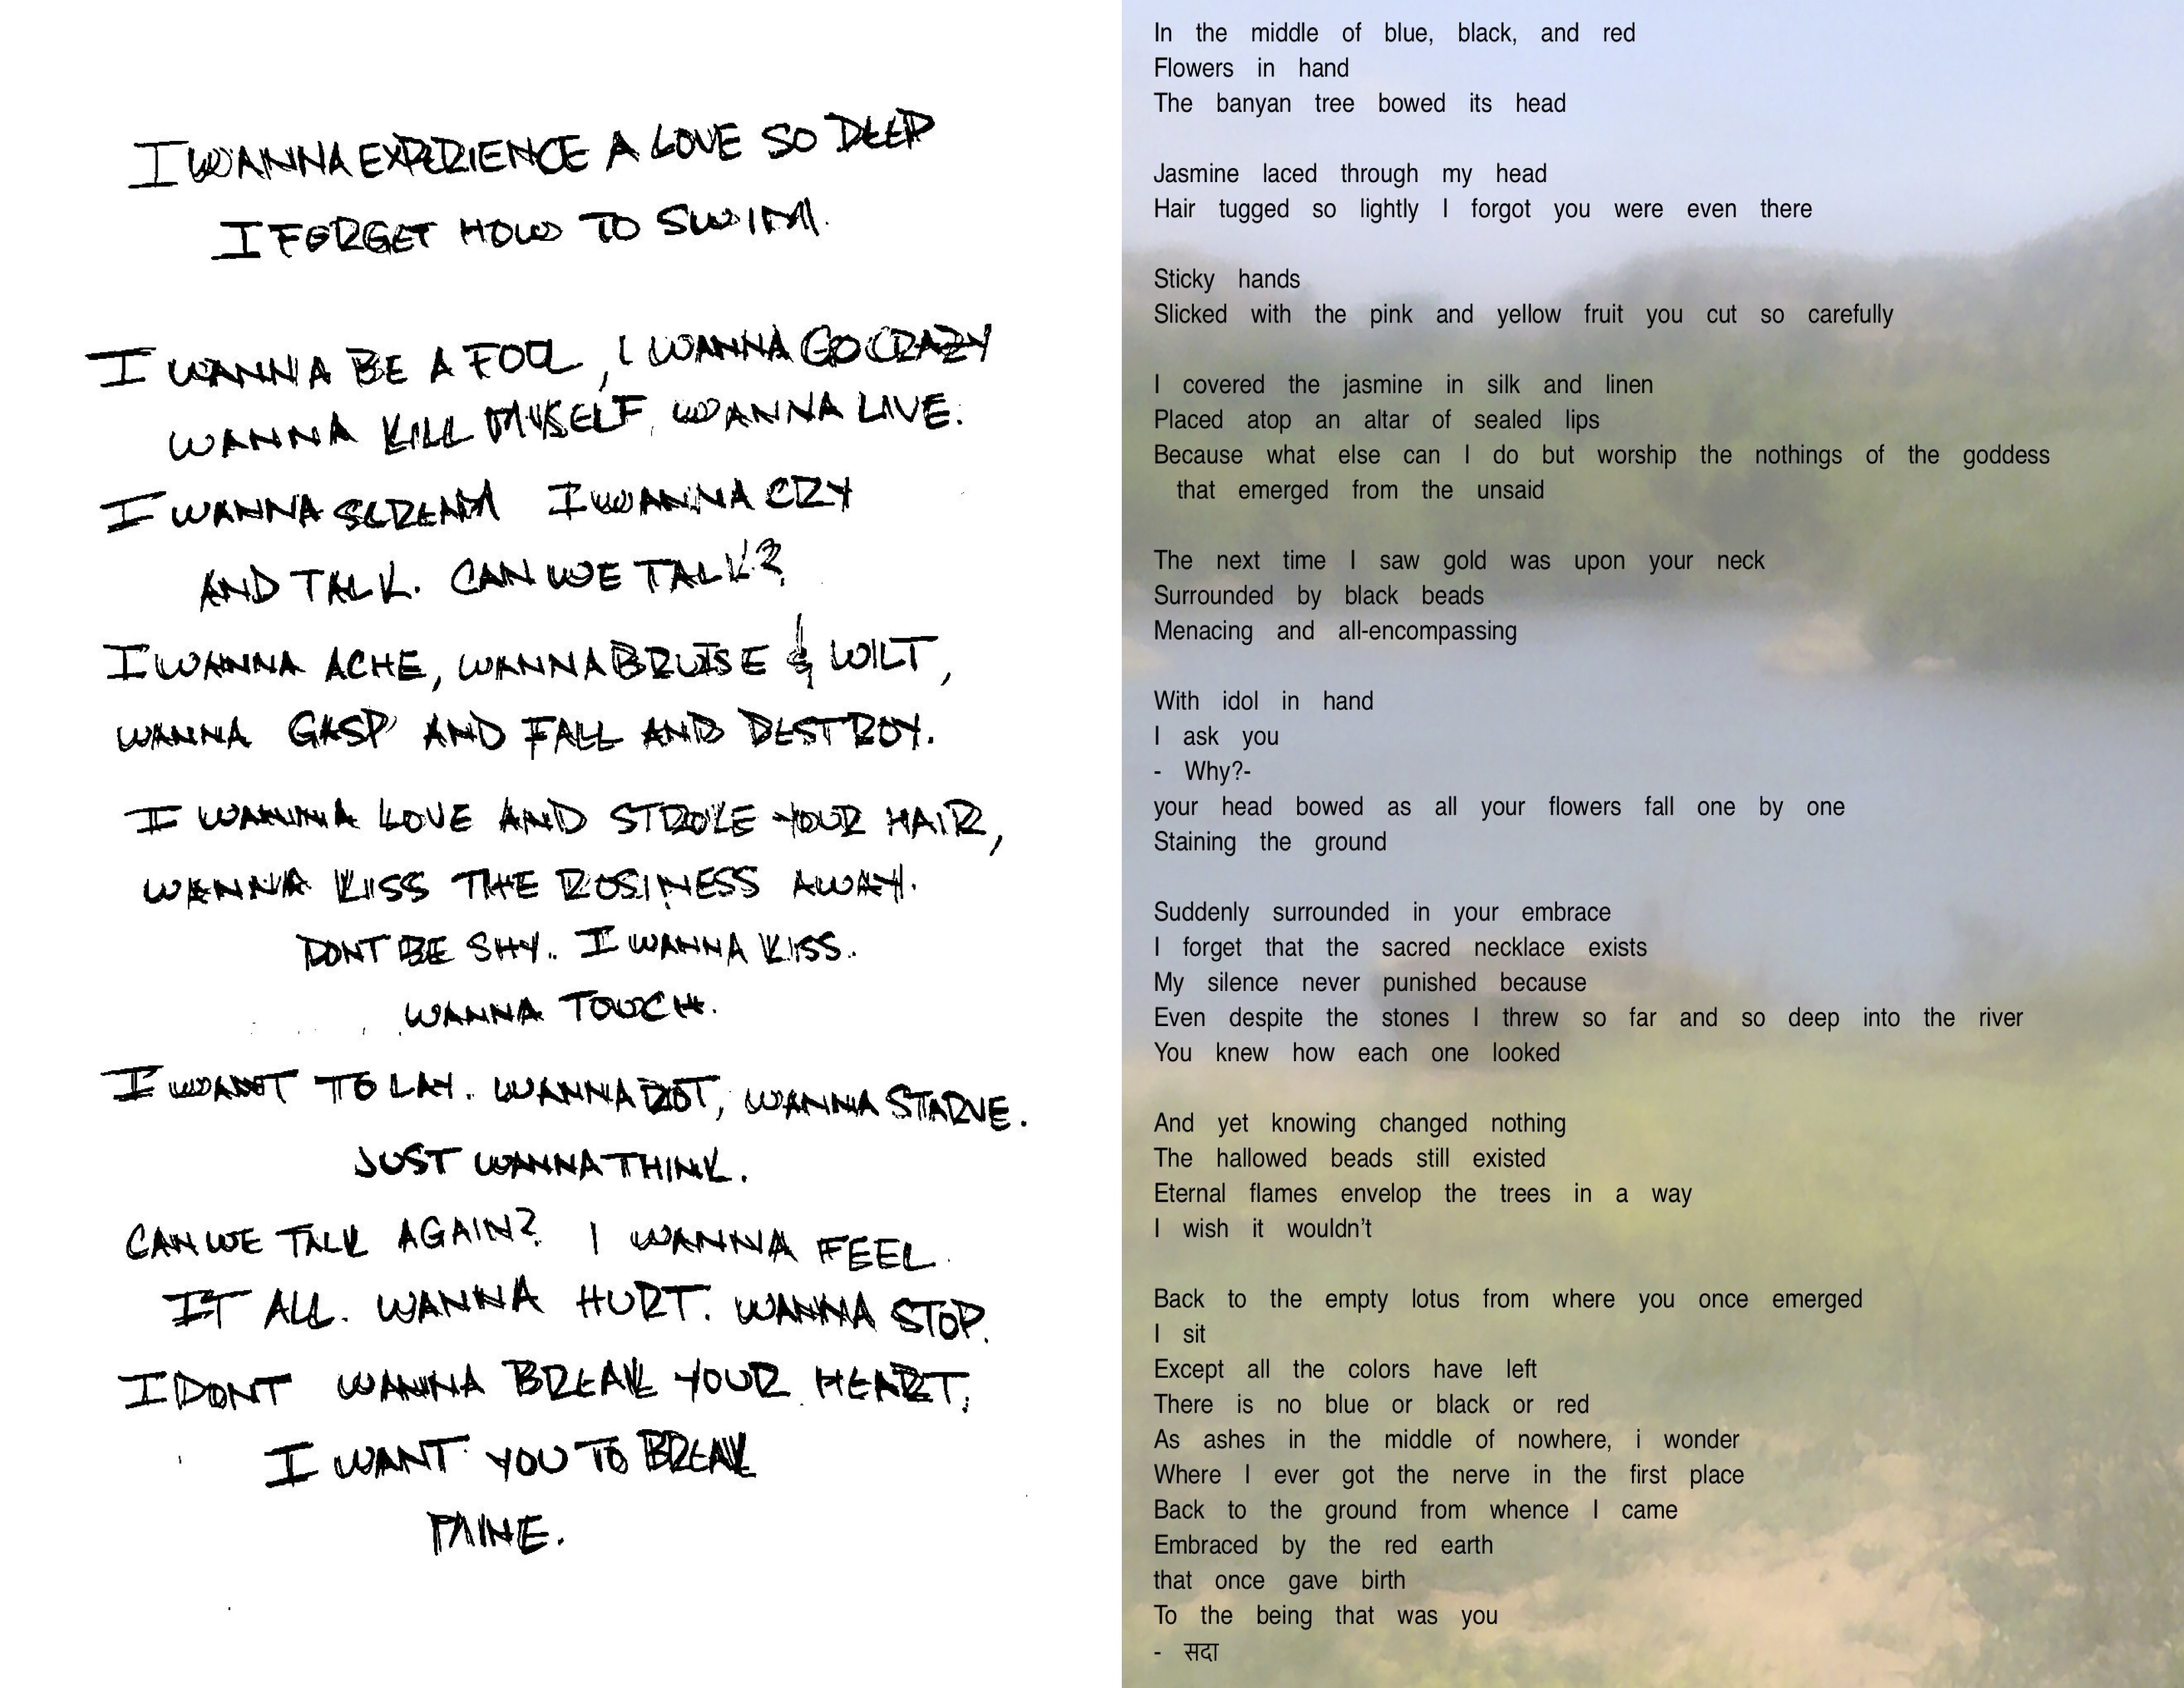 I WANNA EXPERIENCE A LOVE SO DEEP
I FORGET HOW TO SWIM.
I WANNA BE A FOOL, I WANNA GO CRAZY
WANNA KILL MYSELF, WANNA LIVE.
I WANNA SCREAM I WANNA CRY
AND TALK. CAN WE TALK?
I WANNA ACHE, WANNA BRUISE & WILT,
WANNA GASP AND FALL AND DESTROY.
I WANNA LOVE AND STROKE YOUR HAIR,
WANNA KISS THE ROSINESS AWAY.
DONT BE SHY. I WANNA KISS.
WANNA TOUCH.
I WANT TO LAY. WANNA ROT, WANNA STARVE.
JUST WANNA THINK.
CAN WE TALK AGAIN? I WANNA FEEL
IT ALL. WANNA HURT. WANNA STOP.
I DONT WANNA BREAK YOUR HEART,
I WANT YOU TO BREAK
MINE.
In the middle of blue, black, and red
Flowers in hand
The banyan tree bowed its head
Jasmine laced through my head
Hair tugged so lightly I forgot you were even there
Sticky hands
Slicked with the pink and yellow fruit you cut so carefully
I covered the jasmine in silk and linen
Placed atop an altar of sealed lips
Because what else can I do but worship the nothings of the goddess
that emerged from the unsaid
The next time I saw gold was upon your neck
Surrounded by black beads
Menacing and all-encompassing
With idol in hand
I ask you
- Why?-
your head bowed as all your flowers fall one by one
Staining the ground
Suddenly surrounded in your embrace
I forget that the sacred necklace exists
My silence never punished because
Even despite the stones I threw so far and so deep into the river
You knew how each one looked
And yet knowing changed nothing
The hallowed beads still existed
Eternal flames envelop the trees in a way
I wish it wouldn't
Back to the empty lotus from where you once emerged
I sit
Except all the colors have left
There is no blue or black or red
As ashes in the middle of nowhere, i wonder
Where I ever got the nerve in the first place
Back to the ground from whence I came
Embraced by the red earth
that once gave birth
To the being that was you
- सदा